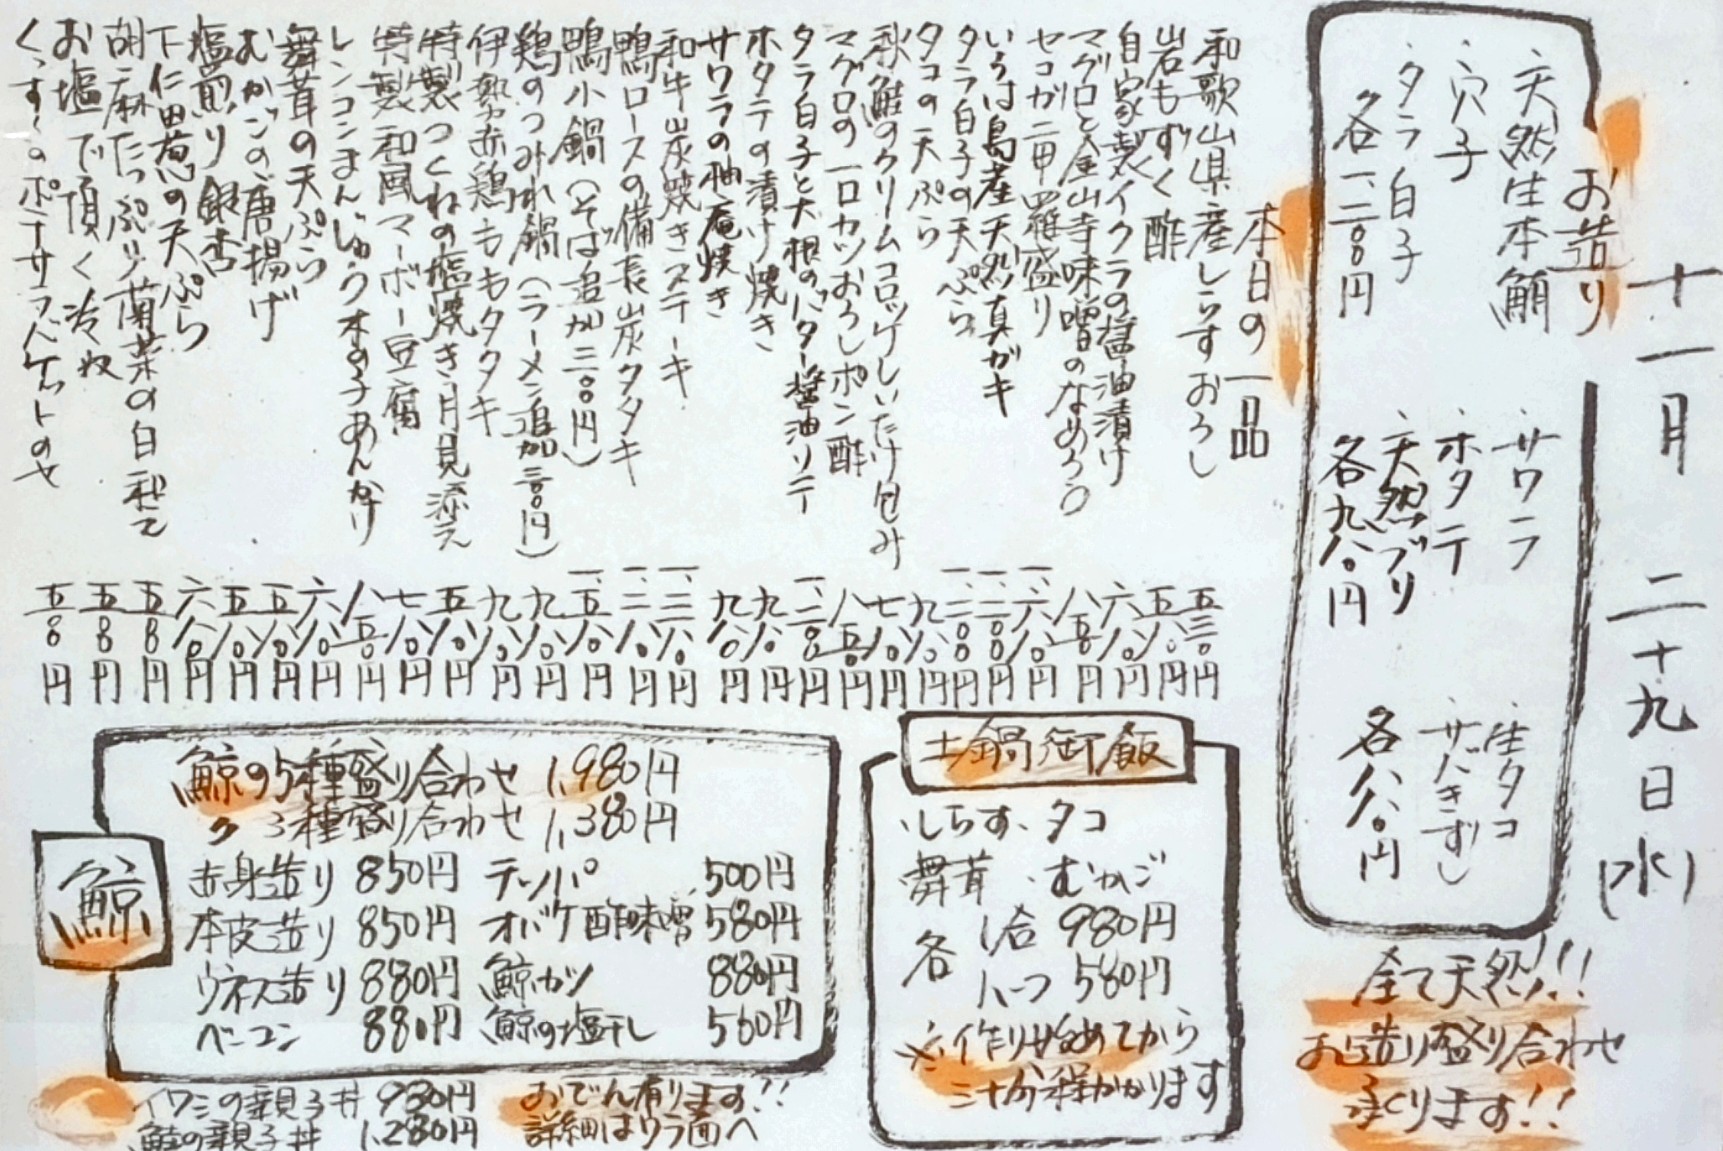 十一月 二十九日(水)
お造り
・天然生本鮪
・穴子
・タラ白子
各一、二〇〇円
・サワラ
・ホタテ
・天然ブリ
各九八〇円
・生タコ
・サバきずし
各八八〇円
全て天然!!!
お造り盛り合わせ
承ります!!
本日の一品
和歌山県産しらすおろし 五三〇円
岩もずく酢 五八〇円
自家製イクラの醤油漬け 六八〇円
マグロと金山寺味噌のなめろう 八五〇円
セコガニ甲羅盛り 一、六八〇円
いろは島産天然真ガキ 一、二〇〇円
タラ白子の天ぷら 一、二〇〇円
タコの天ぷら 九八〇円
秋鮭のクリームコロッケしいたけ包み 七八〇円
マグロの一口カツおろしポン酢 八五〇円
タラ白子と大根のバター醤油ソテー 一、二〇〇円
ホタテの漬け焼き 九八〇円
サワラの柚庵焼き 九八〇円
和牛炭焼きステーキ 一、三八〇円
鴨ロースの備長炭タタキ 一、二八〇円
鴨小鍋(そば追加二〇〇円) 一、五八〇円
鶏のつみれ鍋(ラーメン追加三〇〇円) 九八〇円
伊勢赤鶏もも タタキ 九八〇円
特製つくねの塩焼き 月見添え 五八〇円
特製和風マーボー豆腐 七八〇円
レンコンまんじゅう 木の子あんかけ 八五〇円
舞茸の天ぷら 六八〇円
むかごの唐揚げ 五八〇円
塩煎り銀杏 五八〇円
下仁田葱の天ぷら 六八〇円
胡麻たっぷり菊菜の白和え 五五〇円
お塩で頂く冷奴 五五〇円
くんすくのポテサラバケットのせ 五五〇円
土鍋御飯
・しらす ・タコ
舞茸 ・むかご
各 1合 980円
ハーフ 580円
※作り始めてから
三十分程かかります
鯨
鯨の5種盛り合わせ 1,980円
〃 3種盛り合わせ 1,380円
赤身造り 850円 テッパ 500円
本皮造り 850円 オバケ酢味噌 580円
ウネス造り 880円 鯨カツ 880円
ベーコン 880円 鯨の塩干し 560円
イワシの親子丼 980円
鮭の親子丼 1,280円
おでん有ります!!
詳細はウラ面へ